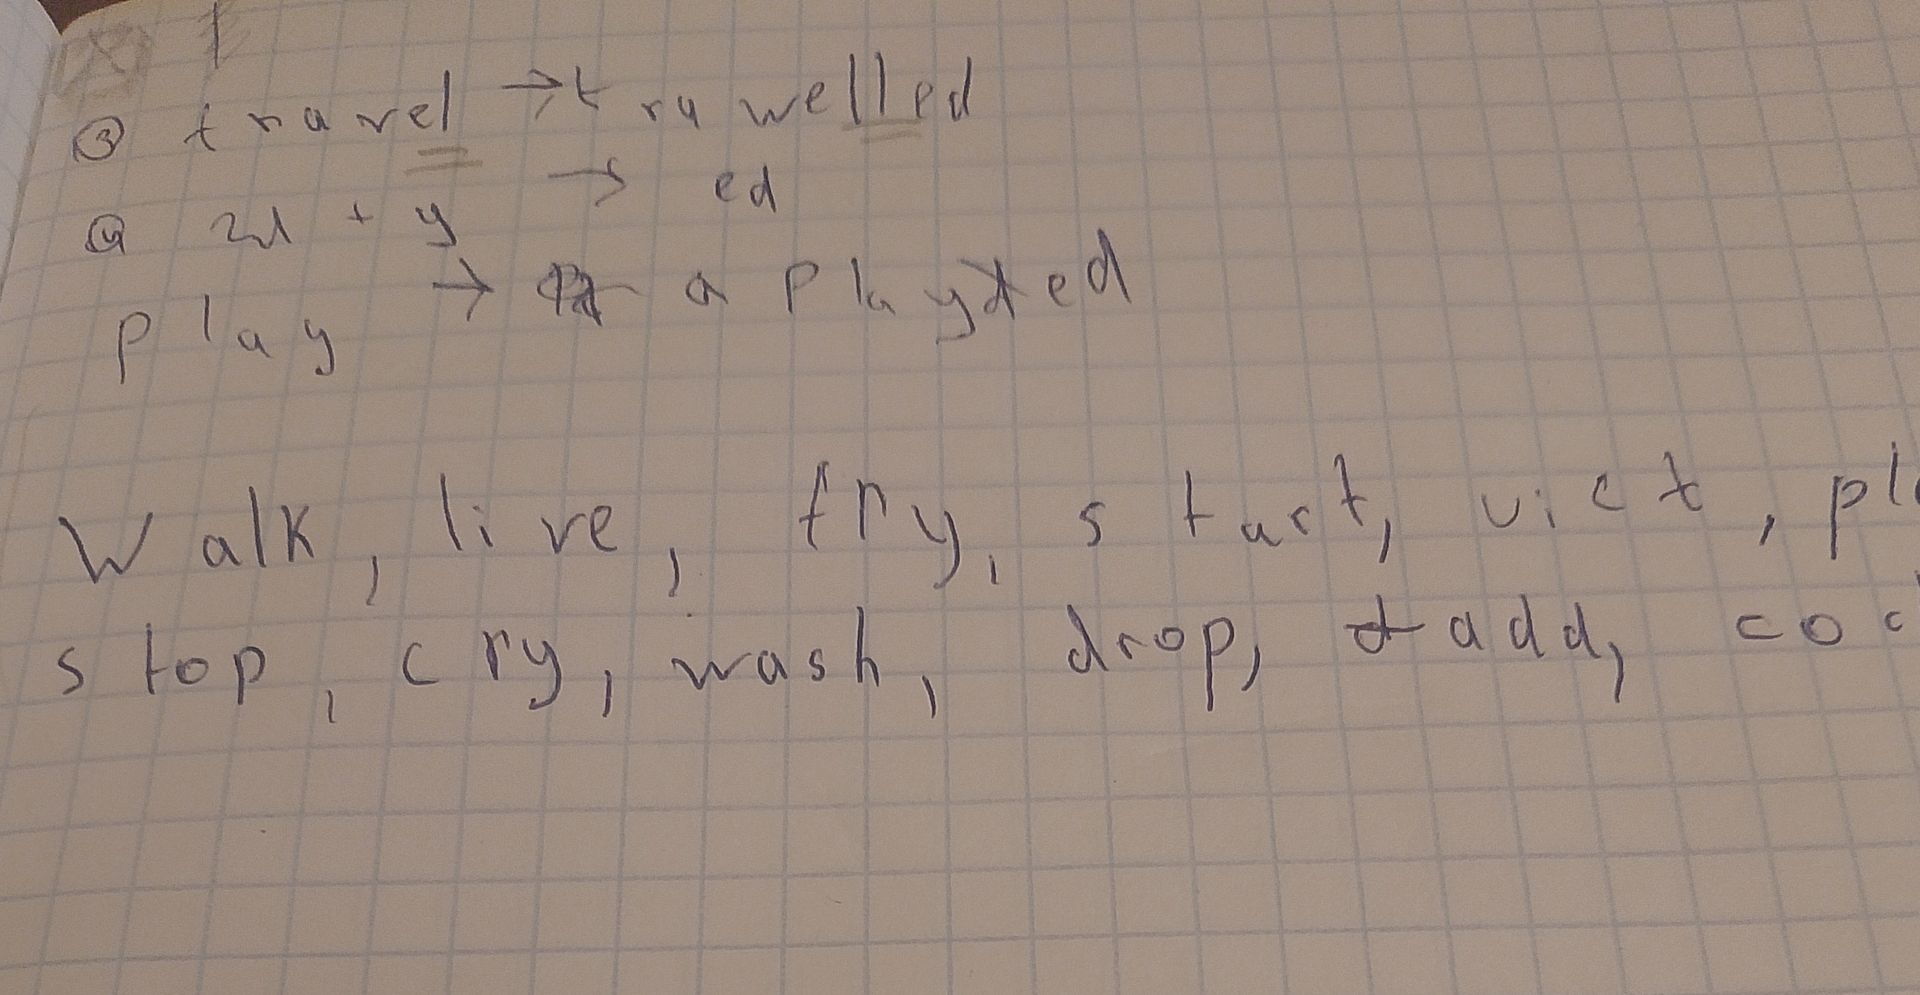 ③ travel → trawelled
④ гл + y → ed
play → a played
Walk, live, try, start, vict, pl
stop, cry, wash, drop, add, coo